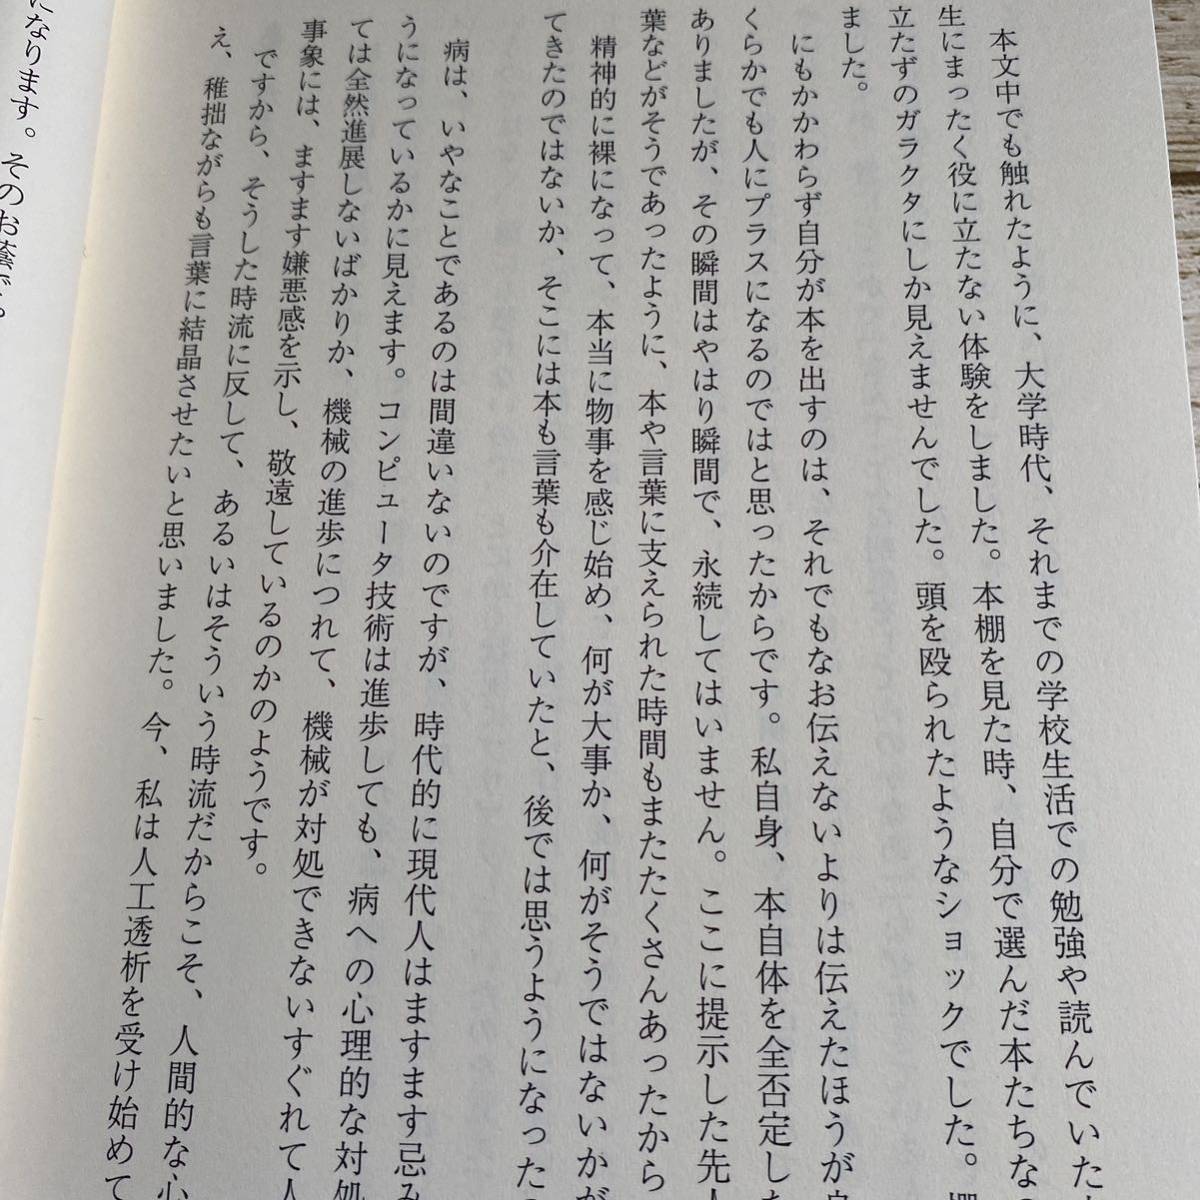 本文中でも触れたように、大学時代、それまでの学校生活での勉強や読んでいた
生にまったく役に立たない体験をしました。本棚を見た時、自分で選んだ本たちな
立たずのガラクタにしか見えませんでした。頭を殴られたようなショックでした。棚
ました。
にもかかわらず自分が本を出すのは、それでもなお伝えないよりは伝えたほうが
くらかでも人にプラスになるのではと思ったからです。私自身、本自体を全否定した
ありましたが、その瞬間はやはり瞬間で、永続してはいません。ここに提示した先人
葉などがそうであったように、本や言葉に支えられた時間もまたたくさんあったから
精神的に裸になって、本当に物事を感じ始め、何が大事か、何がそうではないかが
てきたのではないか、そこには本も言葉も介在していたと、後では思うようになった
病は、いやなことであるのは間違いないのですが、時代的に現代人はますます忌み
うになっているかに見えます。コンピュータ技術は進歩しても、病への心理的な対処
ては全然進展しないばかりか、機械の進歩につれて、機械が対処できないすぐれて人
事象には、ますます嫌悪感を示し、敬遠しているのかのようです。
ですから、そうした時流に反して、あるいはそういう時流だからこそ、人間的な心
え、稚拙ながらも言葉に結晶させたいと思いました。今、私は人工透析を受け始めて
になります。そのお蔭で